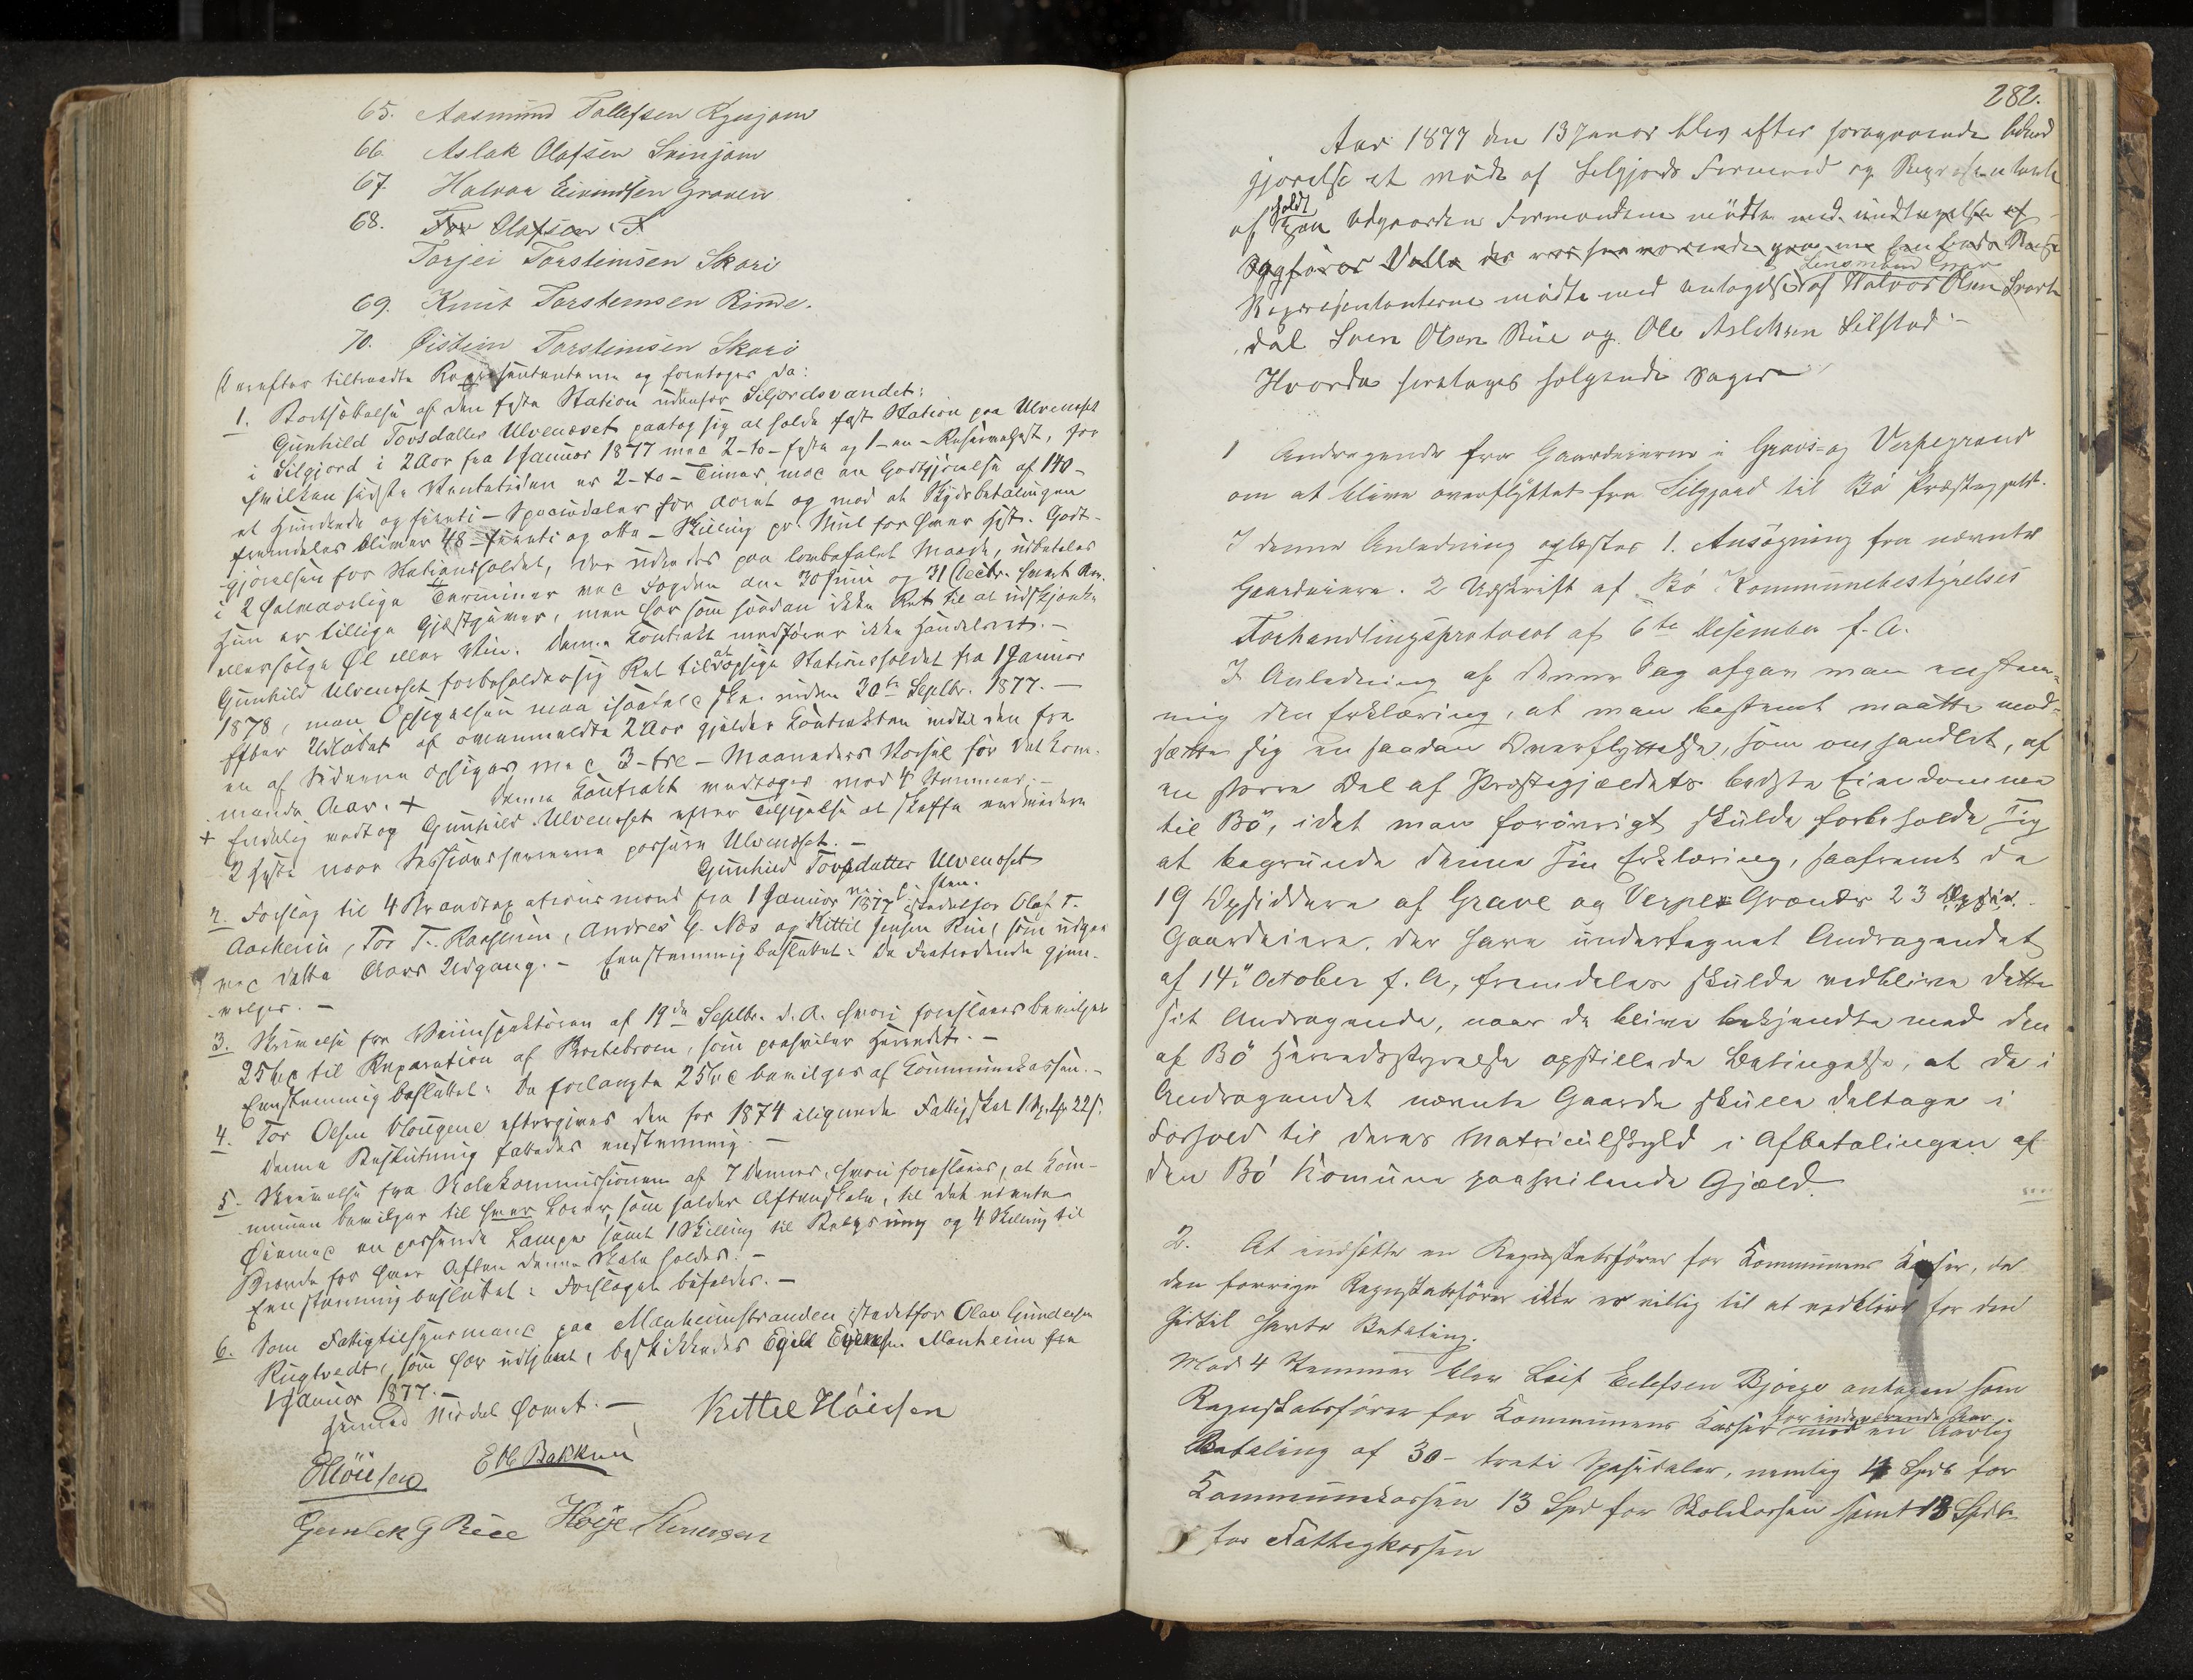 65. Aasmund Tallefsen Kyujam
66. Aslak Olafsen Svinjom
67. Halvor Eivindsen Graven
68. Tor Olafsen S
Torjei Torsteinsen Skori
69. Knut Torsteinsen Rinde.
70. Øistein Torsteinsen Skori
Derefter tiltraadte Repræsentanterne og foretoges da:
1. Bortsættelse af den faste Station udenfor Siljordsvandet:
Gunhild Torsdatter Ulvenæset paatog sig at holde fast Station paa Ulvenæset
i Siljord i 2 Aar fra 1 Januar 1877 med 2 - to - Heste og 1 - en - Reservehest, for
hvilken sidste Ventetiden er 2 - to - Timer, mod en Godtgjørelse af 140 -
et Hundrede og firti - Speciedaler for Aaret og mod at Skydsbetalingen
fremdeles bliver 48 - firti og otte - Skilling pr. Miil for hver Hest. Godt-
gjørelsen for Stationsholdet, der udredes paa lovbefalet Maade, udbetales
i 2 halvaarlige Terminer ved Fogden den 30 Juni og 31 Decbr. hvert Aar.
Hun er tillige Gjæstgiver, men har som saadan ikke Ret til at udskjænke
eller sælge Øl eller Vin. Denne Kontrakt medfører ikke Handelsret. -
Gunhild Ulvenæset forbeholder sig Ret til at opsige Stationsholdet fra 1 Januar
1878, men Opsigelsen maa isaafald ske inden 30te Septbr. 1877. -
Efter Udløbet af ovenmeldte 2 Aar gjælder Kontrakten indtil den fra
en af Siderne opsiges med 3 - tre - Maaneders Varsel før det kom-
mende Aar. + Denne Kontrakt vedtoges mod 4 Stemmer. -
+ Endelig vedtog Gunhild Ulvenæset efter Tilsigelse at skaffe endvidere
2 Heste naar Sessionsherrerne passere Ulvenæset. -
Gunhild Torsdatter Ulvenæset
m. f. Pen.
2. Forslag til 4 Brandtaxationsmænd fra 1 Januar 1877 istedetfor Olaf T.
Aarheim, Tor T. Raasheim, Andres G. Næs og Kittil Jensen Rui, som udgaa
med dette Aars Udgang. - Eenstemmig besluttet: De fratrædende gjen-
vælges. -
3. Skrivelse fra Veiinspektøren af 19de Septbr. d. A. hvori foreslaaes bevilget
25 til Reparation af Brobroen, som paahviler Herredet. -
Eenstemmig besluttet: De forlangte 25 bevilges af Kommunekassen. -
4. Tor Olsen Vougene eftergives den for 1874 ilignede Fattigskat 1 22 s.
Denne Beslutning fattedes enstemmig. -
5. Skrivelse fra Skolekommissionen af 7 dennes, hvori foreslaaes, at Kom-
munen bevilger til hver Lærer, som holder Aftenskole, til det
Øiemed en passende Lampe samt 1 Skilling til Belysning og 4 Skilling til
Brænde for hver Aften denne Skole holdes. -
Eenstemmig besluttet: Forslaget bifaldes. -
6. Som Fattigtilsynsmand paa Manheimstranden istedetfor Olav Gundersen
Rugtvedt, som har udtjent, beskikkedes Egil Manheim fra
1 Januar 1877. -
Hermed Mødet hævet. -
Kittil Høiesen
E K Bakken
Gunlek G Rue
282.
Aar 1877 den 13 Januar blev efter foregaaende bekjend
gjørelse et møde af Selgjords Formænd og Repræsentante
holdt
Sagfører Valle der var
Lensmand
Repræsentanterne mødte med undtagelse af Halvor Olsen Svart
dal Sven Olsen Rue og Ole Aslaksen Lilstad -
Hvorda foretoges følgende Sager
1 Andragende fra Gaardeierne i Gravi- og Verpegrend
om at blive overflyttet fra Silgjord til Bø Præstegjeld.
I denne Anledning oplæstes 1. Ansøgning fra nævnte
Gaardeiere. 2 Udskrift af Bø Kommunebestyrelses
Forhandlingsprotocol af 6te Desember f. A.
I Anledning af denne Sag afgav man enstem-
mig den Erklæring, at man bestemt maatte mod-
sætte sig en saadan Overflyttelse, som omhandlet, af
en større Del af Præstegjældets bedste Eiendomme
til Bø, idet man forøvrigt skulde forbeholde sig
at begrunde denne sin Erklæring, saafremt de
19 Opsiddere af Grave og Verpe Grænder 23
Gaardeiere, der have undertegnet Andragendet
af 14. October f. A, fremdeles skulde vedblive dette
sit Andragende, naar de blive bekjendte med den
af Bø Herredsstyrelse opstillede Betingelse, at de i
Andragendet nævnte Gaarde skulle deltage i
Forhold til deres Matriculskyld i Afbetalingen af
den Bø Komune paahvilende Gjæld.
2. At indsætte en Regnskabsfører for Kommunens Kasser, da
den forrige Regnskabsfører ikke er villig til at vedblive for den
hidtil havte Betaling.
Med 4 Stemmer blev Leif Eilefsen Bjørge antagen som
Regnskabsfører for Kommunens Kasser for indeværende Aar mod en Aarlig
Betaling af 30 - treti Spesidaler, nemlig 4 Spd for
Kommunekassen 13 Spd for Skolekassen samt 13 Spd
for Fattigkassen